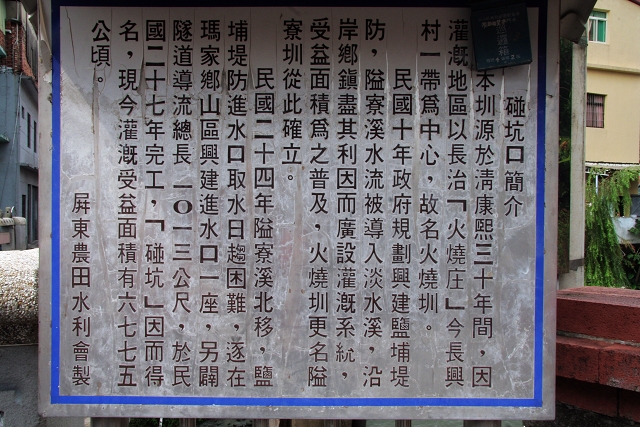 碰坑口簡介
本圳源於清康熙三十年間，因
灌漑地區以長治「火燒庄」今長興
村一帶爲中心，故名火燒圳。
民國十年政府規劃興建鹽埔堤
防，隘寮溪水流被導入淡水溪，沿
岸鄉鎭盡其利因而廣設灌漑系統，
受益面積爲之普及，火燒圳更名隘
寮圳從此確立。
民國二十四年隘寮溪北移，鹽
埔堤防進水口取水日趨困難，逐在
瑪家鄉山區興建進水口一座，另闢
隧道導流總長一０一三公尺，於民
國二十七年完工，「碰坑」因而得
名，現今灌漑受益面積有六七七五
公頃。
屛東農田水利會製